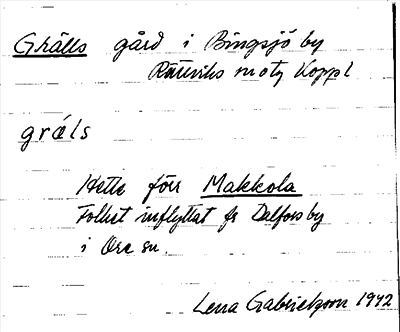 Grälls gård i Bingsjö by
Rättviks
gräls
Hette förr Makkola
Folket inflyttat fr Dalfors by
i Ore sn.
Lena Gabrielsson 1942